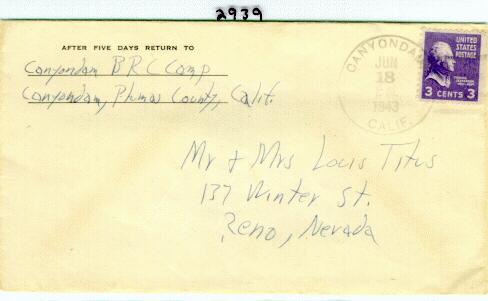 2939
AFTER FIVE DAYS RETURN TO
Canyondam BRC Camp
Canyondam, Plumas County, Calif.
CANYONDAM
JUN
18
1943
CALIF.
UNITED
STATES
POSTAGE
3 CENTS 3
Mr + Mrs Louis Titus
137 Winter St.
Reno, Nevada